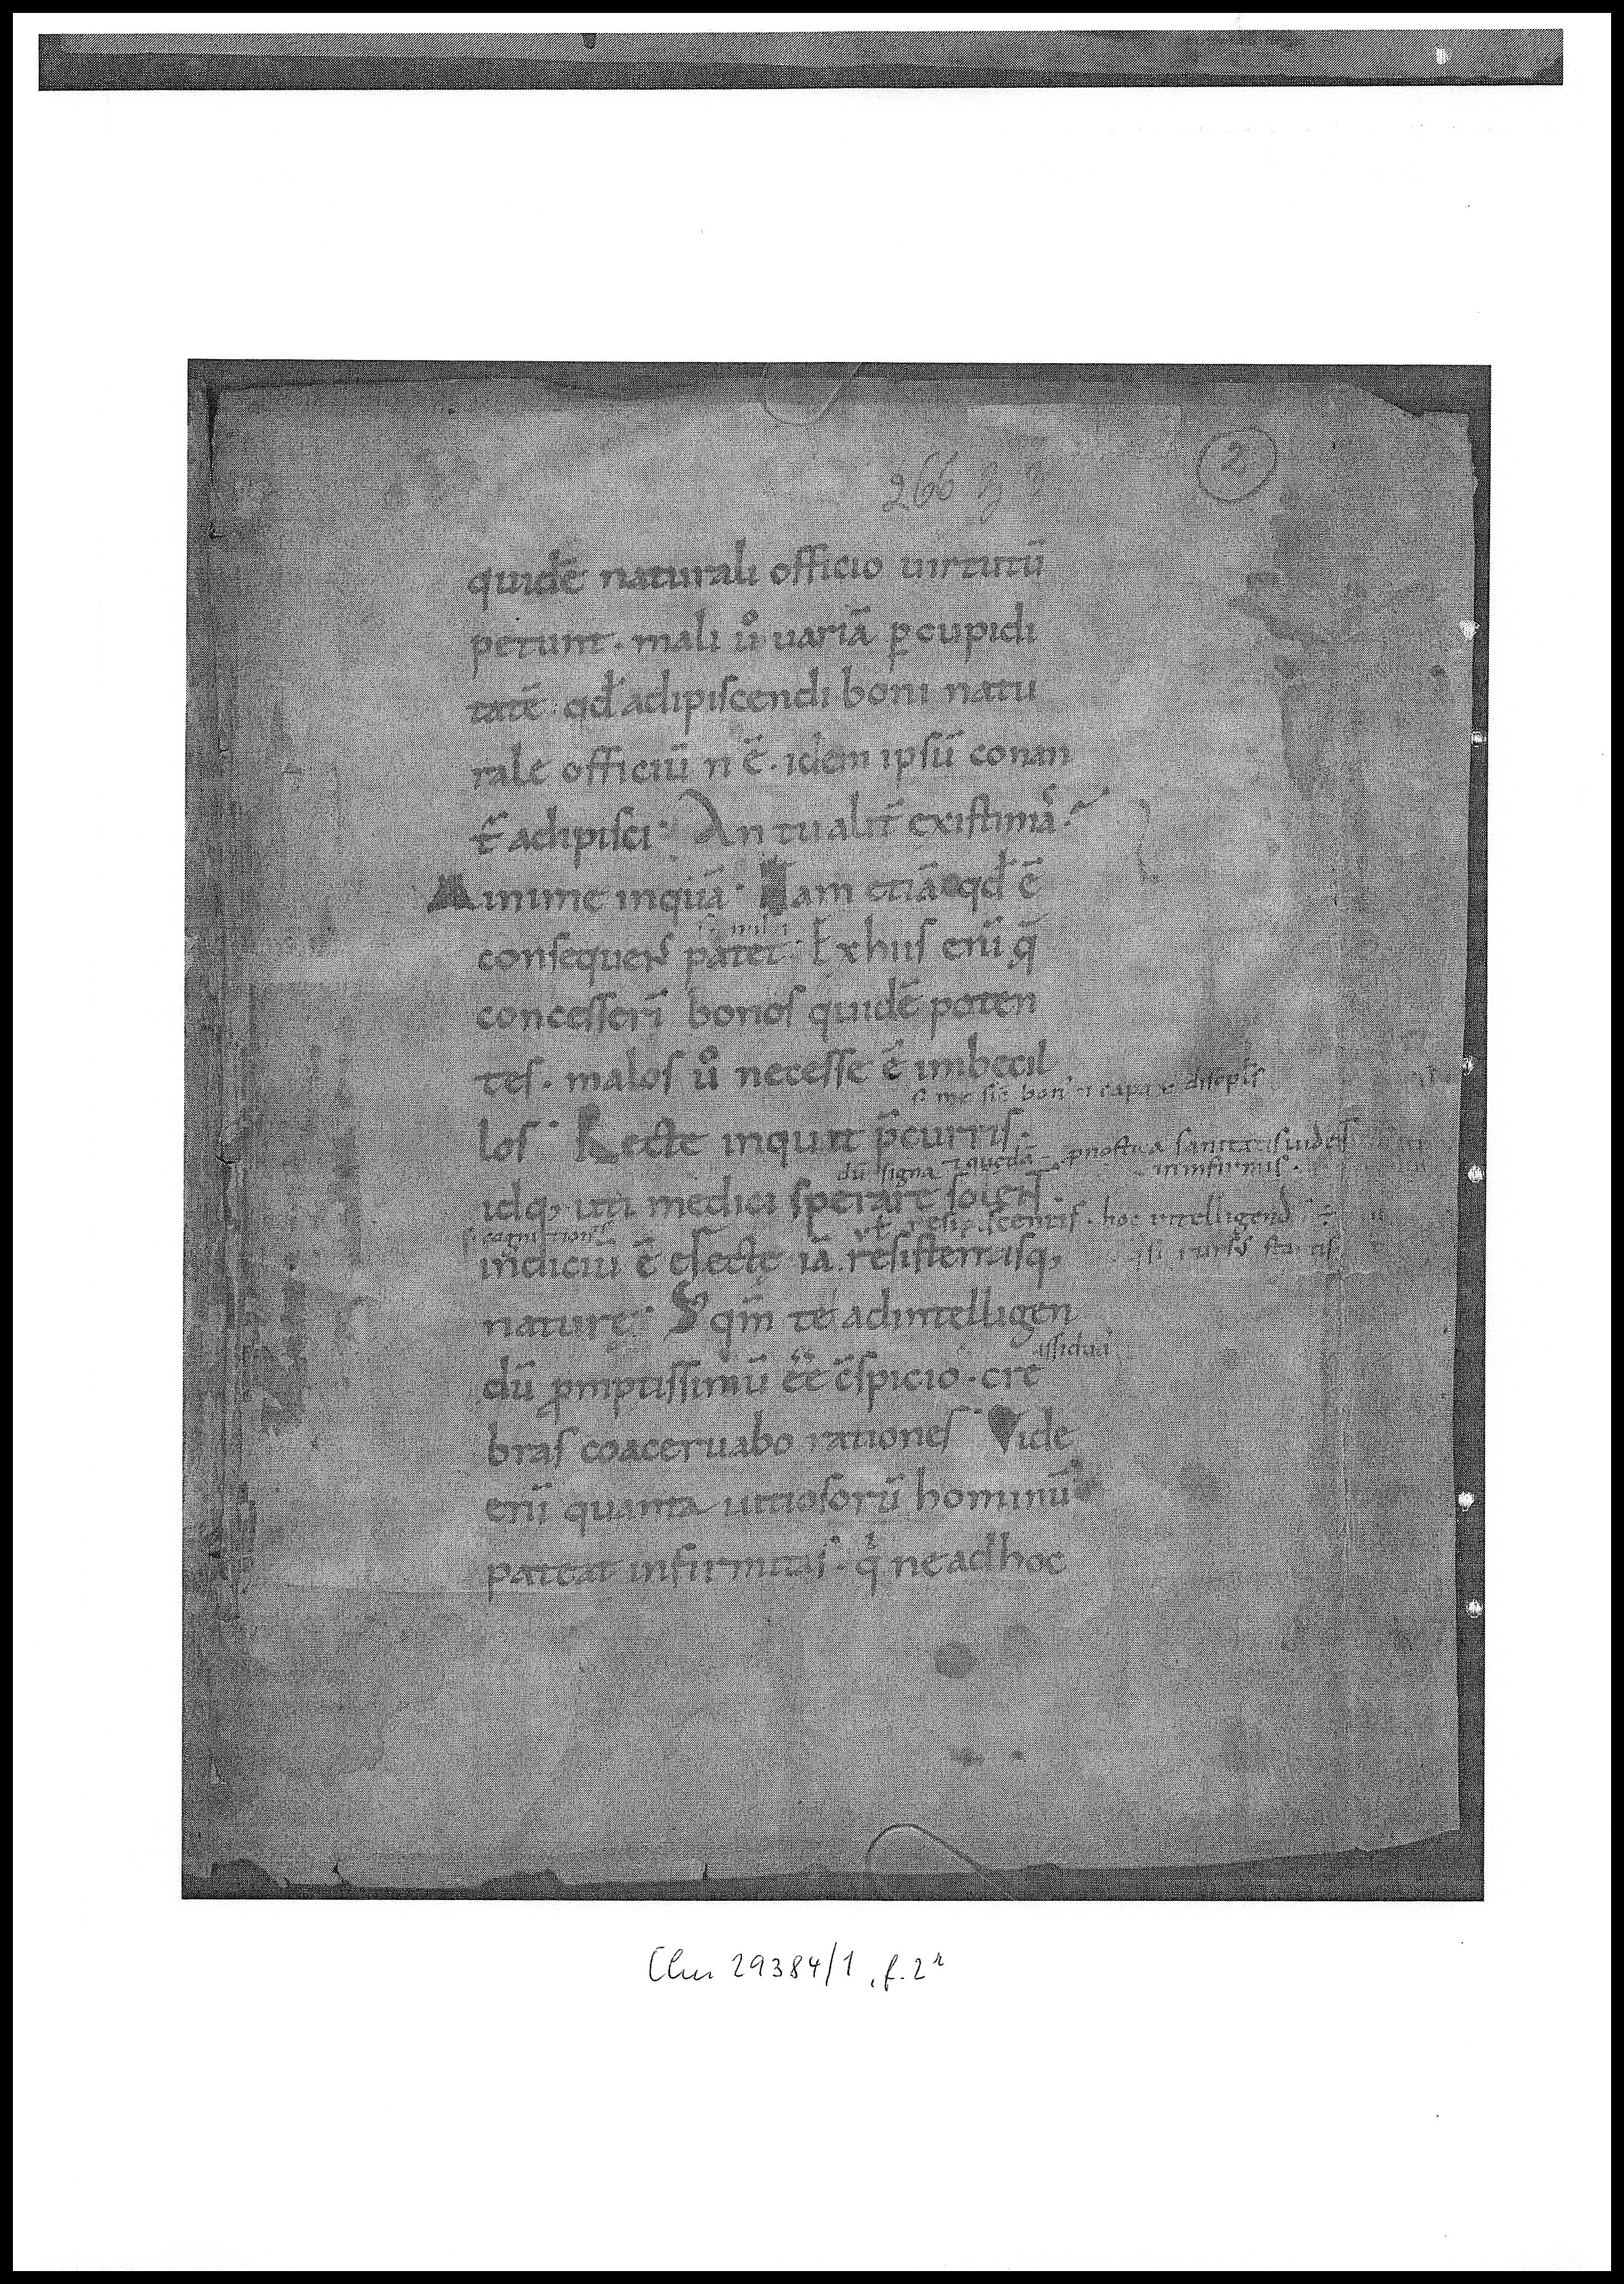 266
2
quidē naturali officio uirtutū
petunt · mali ů uariā p̱ cupidi
tatē · qđ adipiscendi boni natu
rale officiū n̄ ē · idem ipsū conan
t̄ adipisci · An tu alit̄ existimaˢ ?
Minime inquā · Nam etiā qđ ē
consequens patet · Ex hiis enī q̄
concesserī bonos quidē poten
tes · malos ů necesse ē imbecil
los · Recte inquit p̄curris ·
dū signa quedā pnostica sanitatis uidēt
in infirmis ·
idq; uti medici sperare solent ·
resipiscentis · hoc intelligend
indiciū ē erecte iā resistentisq;
naturę · S; qm̄ te ad intelligen
assidua
dū promptissimū eē c̄spicio · cre
bras coaceruabo rationes · Vide
enī quanta uitiosorū hominū
pateat infirmitas · qͥ ne ad hoc
Clm 29384/1, f. 2ʳ